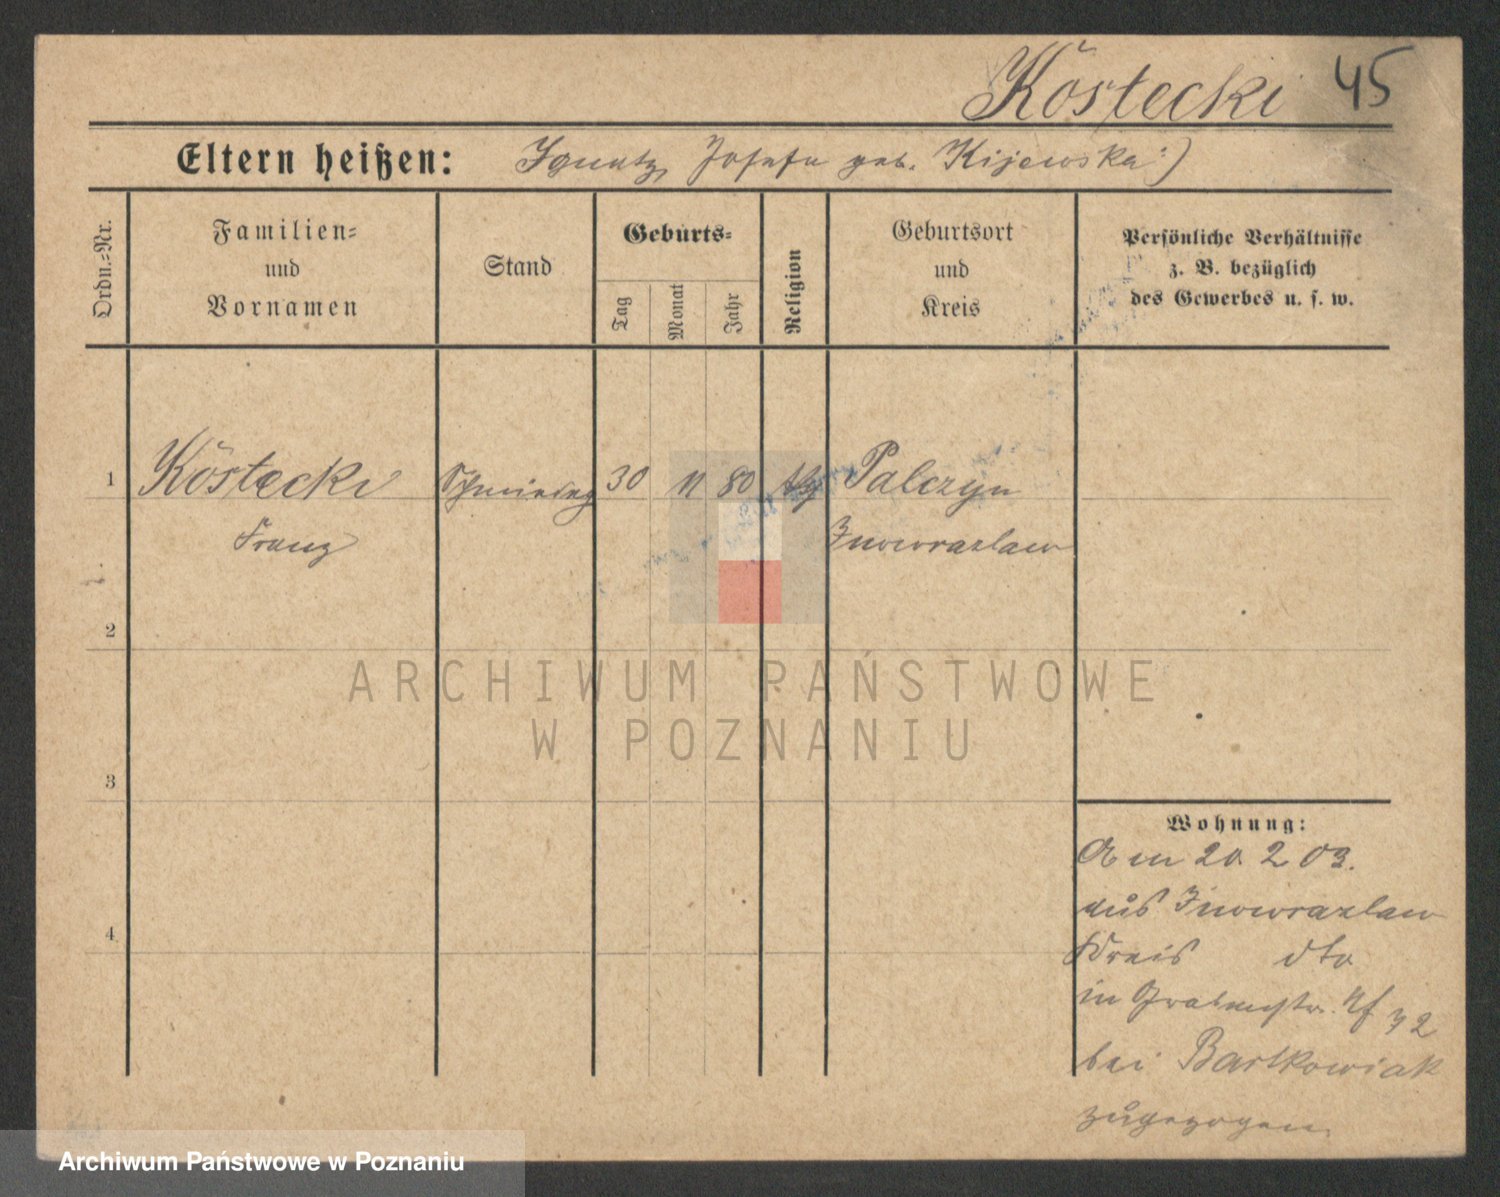 Köstecki 45
Eltern heißen: Ignatz, Josefa geb. Kijewska
Ordn.=Nr.
Familien=
und
Vornamen
Stand
Geburts=
Tag
Monat
Jahr
Religion
Geburtsort
und
Kreis
Persönliche Verhältnisse
z. B. bezüglich
des Gewerbes u. s. w.
1 Köstecki 30 11 80 Palczyn
Franz Inowrazlaw
2
3
4
Wohnung:
Am 20. 2 03.
aus Inowrazlaw
Kreis dto
in
bei Bartkowiak
zugezogen.
ARCHIWUM PAŃSTWOWE
W POZNANIU
Archiwum Państwowe w Poznaniu